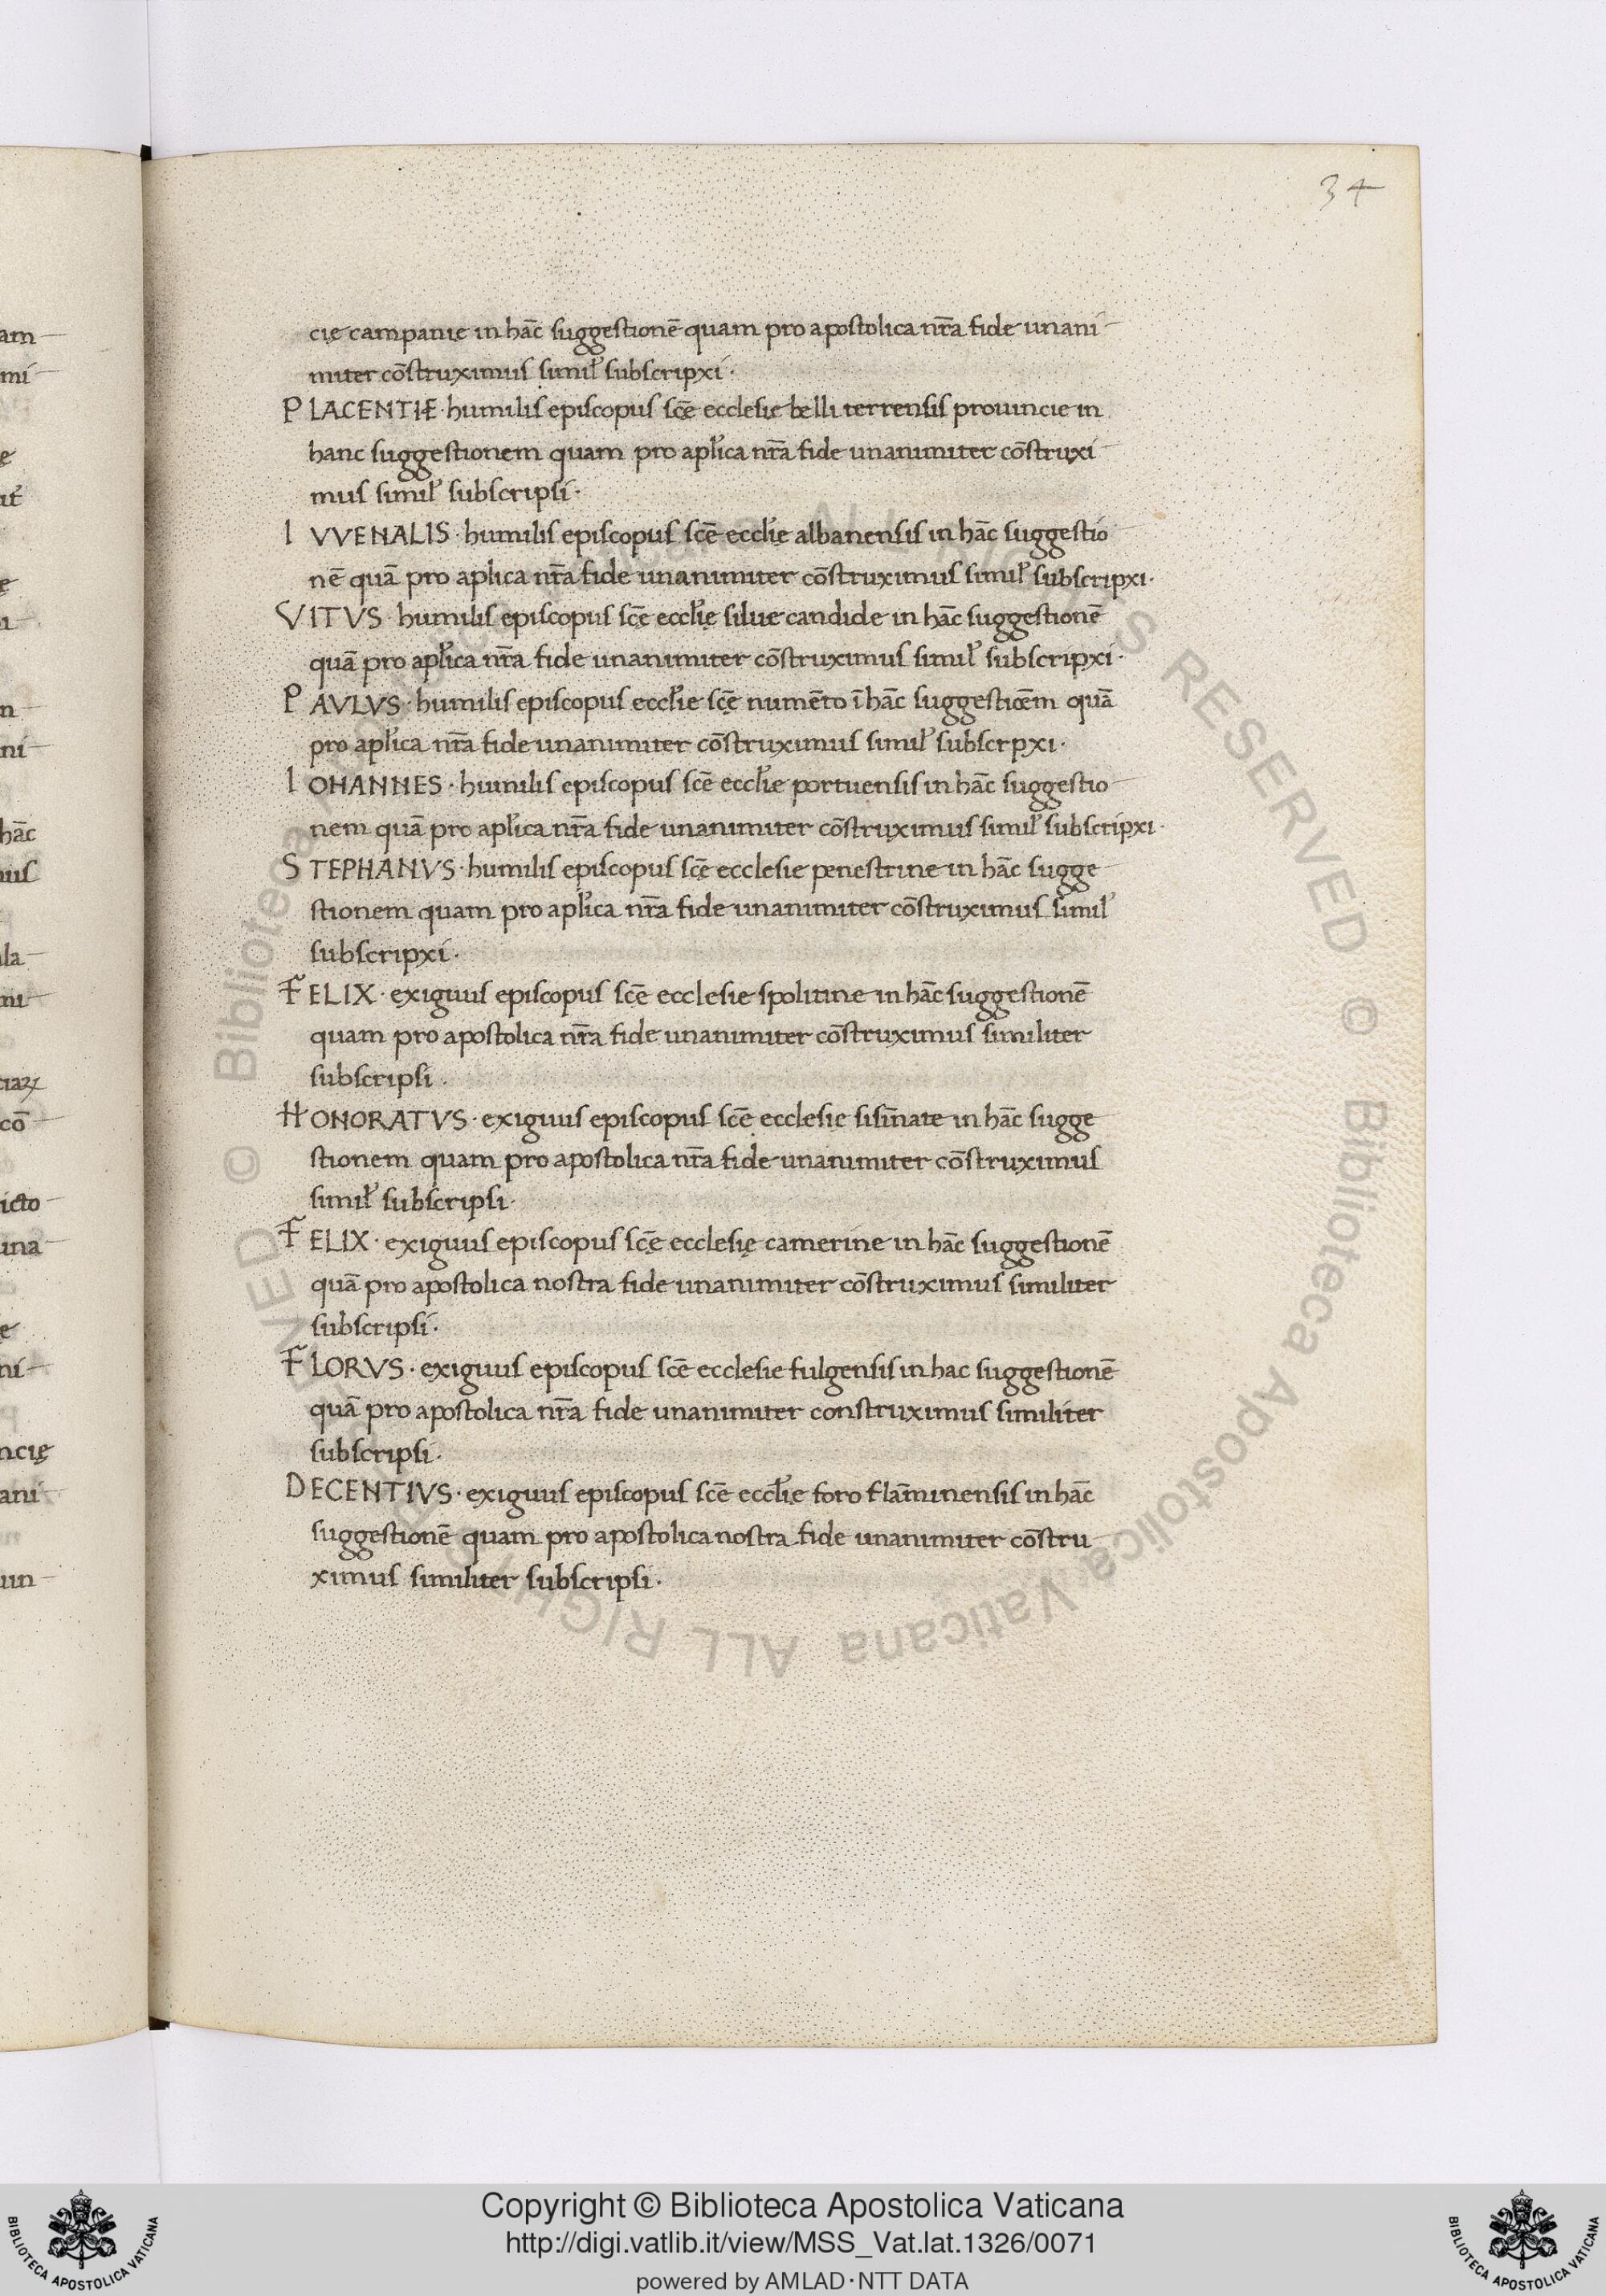 34
cię campanię in hāc suggestionē quam pro apostolica nr̄a fide unani
miter cōstruximus simil̛ subscripxi·
PLACENTIĘ· humilis episcopus scē ecclesie belli terrensis prouincie in
hanc suggestionem quam pro apl̛ica nr̄a fide unanimiter cōstruxi
mus simil̛ subscripsi·
IVVENALIS· humilis episcopus scē eccl̛ię albanensis in hāc suggestio
nē quā pro aplica nr̄a fide unanimiter cōstruximus simil̛ subscripxi·
VITVS· humilis episcopus scę̄ eccl̛ię silue candide in hāc suggestionē
quā pro apl̛ica nr̄a fide unanimiter cōstruximus simil̛ subscripxi·
PAVLVS· humilis episcopus eccl̛ie scę̄ numēto ī hāc suggesticēm quā
pro apl̛ica nr̄a fide unanimiter cōstruximus simil̛ subscrpxi·
IOHANNES· humilis episcopus scē eccl̛ie portuensis in hāc suggestio
nem quā pro apl̛ica nr̄a fide unanimiter cōstruximus simil̛ subscripxi·
STEPHANVS· humilis episcopus scę̄ ecclesie penestrine in hāc sugge
stionem quam pro apl̛ica nr̄a fide unanimiter cōstruximus simil̛
subscripxi·
FELIX· exiguus episcopus scē ecclesie spolitine in hāc suggestionē
quam pro apostolica nr̄a fide unanimiter cōstruximus similiter
subscripsi·
HONORATVS· exiguus episcopus scē ecclesie sisīnate in hāc sugge
stionem quam pro apostolica nr̄a fide unanimiter cōstruximus
simil̛ subscripsi·
FELIX· exiguus episcopus scę̄ ecclesię camerine in hāc suggestionē
quā pro apostolica nostra fide unanimiter cōstruximus similiter
subscripsi·
FLORVS· exiguus episcopus scē ecclesie fulgensis in hac suggestionē
quā pro apostolica nr̄a fide unanimiter construximus similiter
subscripsi·
DECENTIVS· exiguus episcopus scē eccl̛ie foro flām̄inensis in hāc
suggestionē quam pro apostolica nostra fide unanimiter cōstru
ximus similiter subscripsi·
© Biblioteca Apostolica Vaticana ALL RIGHTS RESERVED © Biblioteca Apostolica Vaticana ALL RIGHTS RESERVED
Copyright © Biblioteca Apostolica Vaticana
http://digi.vatlib.it/view/MSS_Vat.lat.1326/0071
powered by AMLAD·NTT DATA
BIBLIOTECA APOSTOLICA VATICANA
BIBLIOTECA APOSTOLICA VATICANA